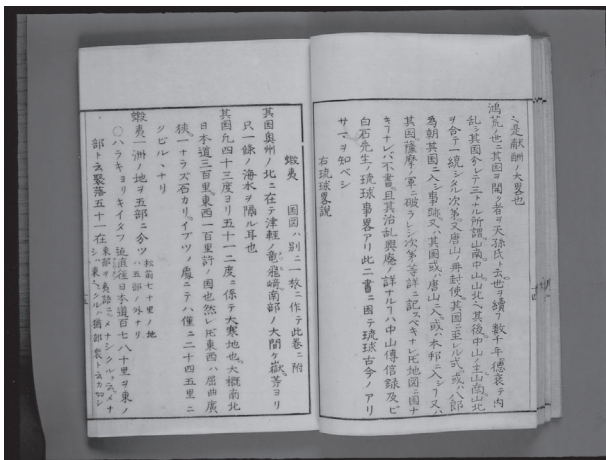 是献酬ノ大畧也
鴻荒ノ世ニ其国ヲ闢ク者ヲ天孫氏ト云世ヲ續ク数千年徳衰テ内
乱シ其国分レテ三トナル所謂山南中山山北ヘ其後中山ノ主山南山北
ヲ合テ一統シタル次第又唐山ノ冊封使其国ニ至ル式或ハ八郎
為朝其国ニ入シ事跡又ハ其国或ハ唐山ニ入或ハ本邦ニ入シ
其国薩摩ノ軍ニ破ラレシ次第等詳ニ記スベキナレ𪜈地圖ニ因ナ
キナレバ不書且其治乱興廢ノ詳ナル ハ中山傳信録及ビ
白石先生ノ琉球事畧アリ此二書ニ因テ琉球古今ノアリ
サマヲ知ベシ
右琉球畧説
蝦夷 国図ハ別ニ一枚ニ作テ此巻ニ附
其国奥州ノ北ニ在テ津軽ノ竜飛﨑南部ノ大間ヶ嶽等ヨリ
只一條ノ海水ヲ隔ル耳也
其国凡四十三度ヨリ五十一二度ニ係テ大寒地也大概南北
日本道三百里東西一百里許ノ国也然レ𪜈東西ハ屈曲廣
狭一ナラズ石カリイブツノ處ニテハ僅ニ二十四五里ニ
クビルヽナリ
蝦夷一洲ノ地ヲ五部ニ分ツ 松前七十里ノ地ハ五部ノ外ナリ
〇ハラキヨリキイタツフ迠直徑日本道百七八十里ヲ東ノ
部ト云聚落五十一在 東部ヲ夷語ニメナシクルト云メナシハ東ニシテクルハ